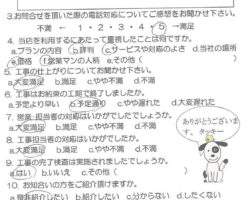 3.お問合せを頂いた際の電話対応についてご感想をお聞かせ下さい。
不満 ← 1・2・3・4・5 →満足
4.当社を利用するにあたって重視された点は何ですか。
a.プランの内容 b.評判 c.サービスや対応のよさ d.当社の場所
e.価格 f.営業マンの人柄 e.その他(
5.工事の仕上がりについてお聞かせ下さい。
a.大変満足 b.満足 c.やや不満 d.不満
6.工事はお約束の工期で終了しましたか。
a.予定より早い b.予定通り c.やや遅れた d.大変遅れた
7.営業・担当者の対応はいかがでしたか。
a.大変満足 b.満足 c.やや不満 d.不満
8.工事担当者の対応はいかがでしたか。
a.大変満足 b.満足 c.やや不満 d.不満
9.工事の完了検査は実施されましたでしょうか。
a.はい b.いいえ c.その他(
10.お知合いの方をご紹介頂けますか。
a.是非紹介したい b.紹介したい c.分からない d.したくない
ありがとうございます。タッキー